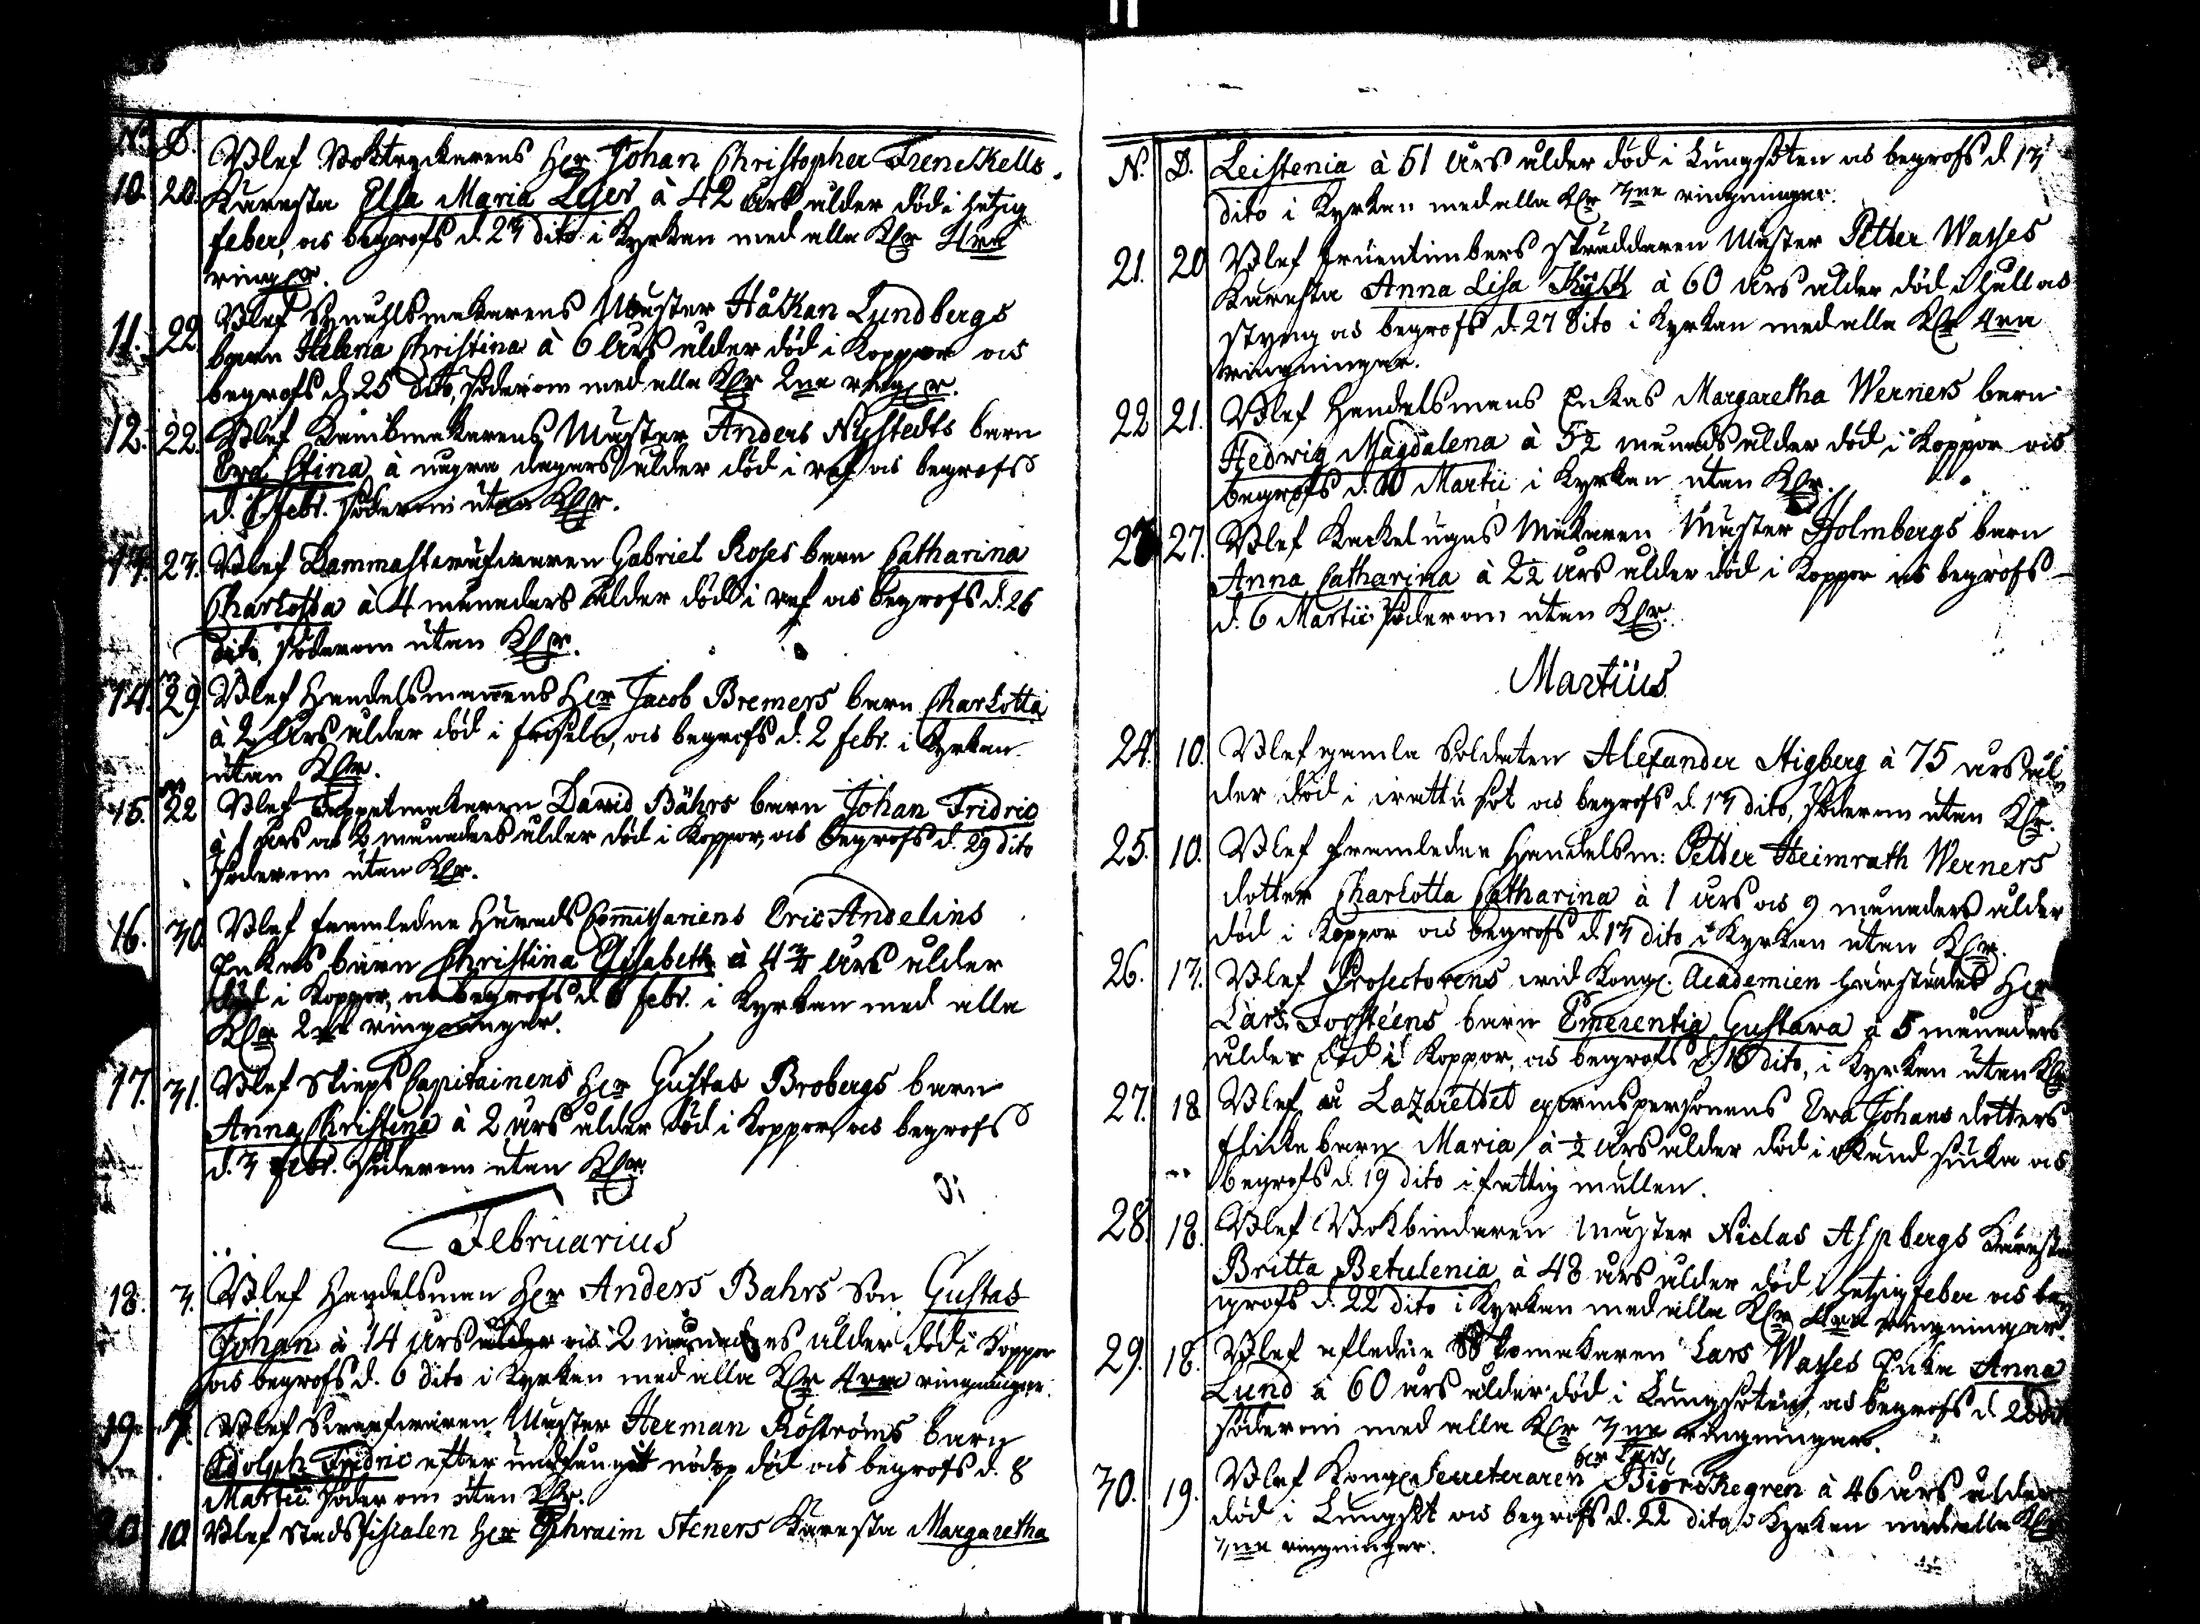 No D.
10. 20. Blef Boktryckarens Her Johan Christopher Frenckells
Käresta Elsa Maria à 42 Års ålder död i hetzig
feber, os begrofs d. 23 dito i Kyrkan med alla Klr 4ra
ringr.
11. 22. Blef Mäster Håckan Lundbergs
barn Helena Christina à 6 Års ålder död i Koppor os
begrofs d. 25 dito, söderom med alla Klr 2na ringr.
12. 22. Blef Mäster Anders Nystedts barn
Eva Stina à några dagars ålder död i ref os begrofs
d. febr. söderom utan Klr.
13. 23. Blef Gabriel Roses barn Catharina
Charlotta à 4 månaders ålder död i ref os begrofs d. 26
dito, söderom utan Klr.
14. 29 Blef Handelsmannens Her Jacob Bremers barn Charlotta
à 2 Års ålder död i frisel, os begrofs d. 2 febr. i Kyrkan
utan Klr.
15. 22 Blef David Bährs barn Johan Fridric
à 1 års os månaders ålder död i Koppor, os begrofs d. 29 dito
söderom utan Klr.
16. 30 Blef framledne Härads Commissariens Eric Anselins
Enkas barn Christina Elisabeth à 4 3/4 Års ålder
död i Koppor, os begrofs d. 6 febr. i Kyrkan med alla
Klr 2na ringningar.
17. 31. Blef Skieps Capitainens Her Gustas Brobergs barn
Anna Christina à 2 års ålder död i Koppor, os begrofs
d. 3 febr. söderom utan Klr.
Februarius
18. 3. Blef Handelsman Her Anders Bahrs Son Gustas
Johan à 14 års ålder os 2 månaders ålder död i Koppor
os begrofs d. 6 dito i Kyrkan med alla Klr 4ra ringningar.
19. Blef Mäster Herman Röströms barn
Adolph Fridric efter undfångit nödop död os begrofs d. 8
Martii söderom utan Klr.
20. 10. Blef Stads fiscalen Her Ephraim Steners Käresta Margaretha
N. D. Leistenia à 51 Års ålder död i Lungsoten os begrofs d. 13
dito i Kyrkan med alla Klr 3ne ringningar.
21. 20 Blef fruentimbers skräddaren Mäster Petter Wasses
Käresta Anna Lisa à 60 års ålder död i håll os
styng os begrofs d. 27 dito i Kyrkan med alla Klr 4ra
ringningar.
22 21. Blef Handelsmans Enkas Margaretha Werners barn
Hedwig Magdalena à 5½ månads ålder död i Koppor os
begrofs d. Martii i Kyrkan utan Klr.
23 27. Blef Kackelugns Makaren Mäster Holmbergs barn
Anna Catharina à 2½ års ålder död i Koppor os begrofs
d. 6 Martii söderom utan Klr.
Martius
24. 10. Blef gamla Soldaten Alexander Stigberg à 75 års ål
der död i sot os begrofs d. 13 dito, söderom utan Klr.
25. 10. Blef framledne Handelsm: Petter Heimrath Werners
dotter Charlotta Catharina à 1 års os 9 månaders ålder
död i Koppor os begrofs d. 13 dito i Kyrkan utan Klr.
26. 13. Blef Prosectorens wid Kongl. Academien härstädes Her
Lars Forsteens barn Emerentia Gustava à 5 månaders
ålder död i Koppor, os begrofs d. 16 dito, i Kyrkan utan Klr
27. 18 Blef Lazarettet Eva Johans dotters
flicke barn Maria à ½ års ålder död i os
begrofs d. 19 dito i fattig mullen.
28. 18. Blef Bokbindaren Mäster Niclas Aspbergs Käresta
Britta Betulenia à 48 års ålder död i hetzig feber os be
grofs d. 22 dito i Kyrkan med alla Klr 4ra ringningar.
29. 18. Blef afledne Skomakaren Lars Wasses Enka Anna
Lund à 60 års ålder död i Lungsoten, os begrofs d. 28 dit
söderom med alla Klr 3ne ringningar.
her Lars
30. 19. Blef Kongl. Secreteraren Biörckegren à 46 års ålder
död i Lungsot os begrofs d. 22 dito i Kyrkan med alla Klr
3ne ringningar.